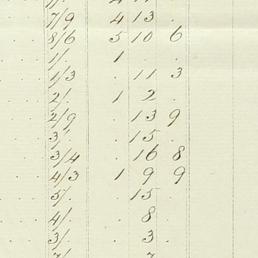 7/9 4 13 .
8/6 5 10 6
1/. 1 . .
1/3 . 11 3
2/. 1 2 .
2/9 . 13 9
3/. . 15 .
3/4 . 16 8
4/3 1 9 9
5/. . 15 .
4/. . 8 .
3/. . 3 .